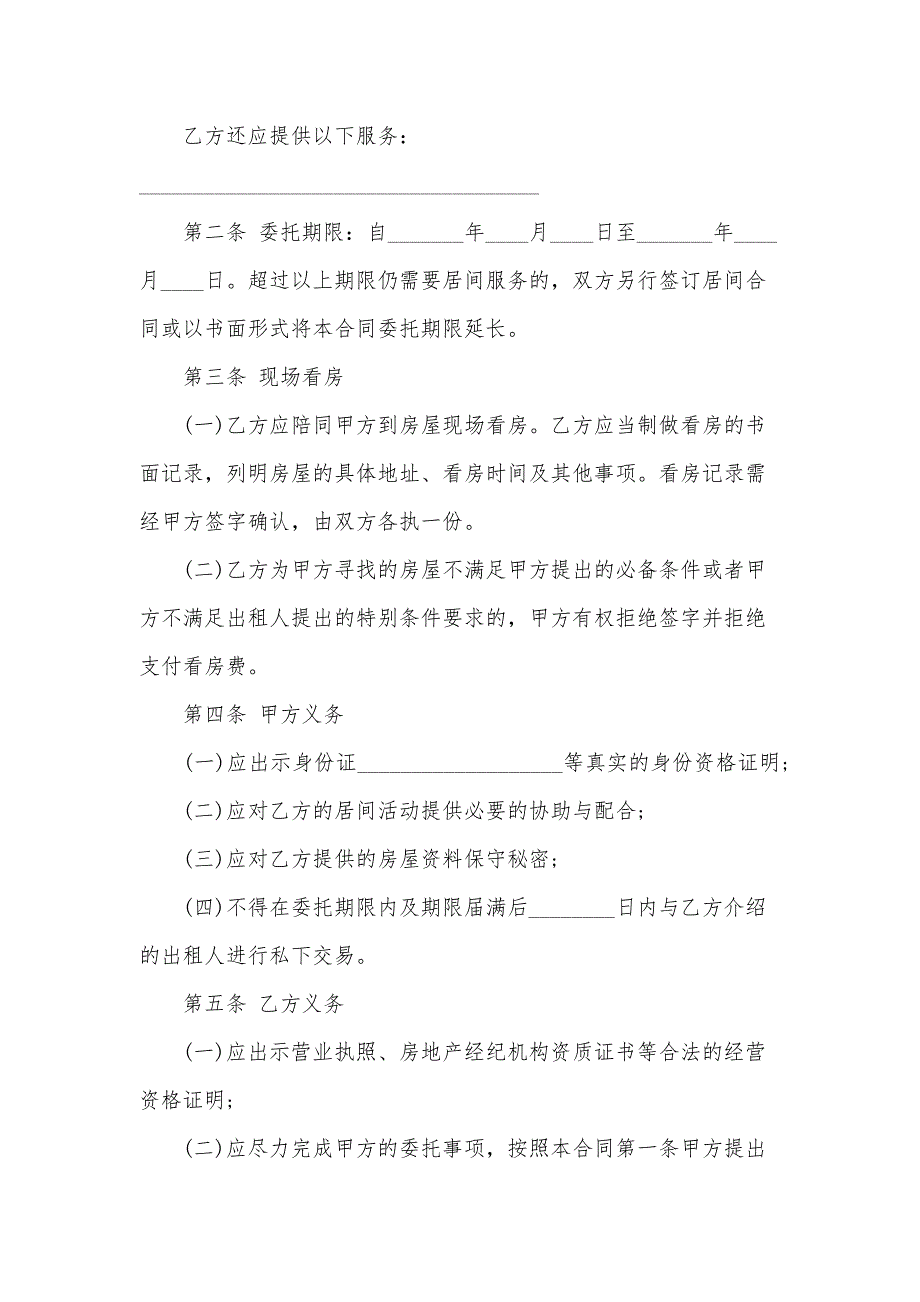 乙方还应提供以下服务：
_____________________________________
第二条 委托期限：自_______年____月____日至_______年____
月____日。超过以上期限仍需要居间服务的，双方另行签订居间合
同或以书面形式将本合同委托期限延长。
第三条 现场看房
(一)乙方应陪同甲方到房屋现场看房。乙方应当制做看房的书
面记录，列明房屋的具体地址、看房时间及其他事项。看房记录需
经甲方签字确认，由双方各执一份。
(二)乙方为甲方寻找的房屋不满足甲方提出的必备条件或者甲
方不满足出租人提出的特别条件要求的，甲方有权拒绝签字并拒绝
支付看房费。
第四条 甲方义务
(一)应出示身份证___________________等真实的身份资格证明;
(二)应对乙方的居间活动提供必要的协助与配合;
(三)应对乙方提供的房屋资料保守秘密;
(四)不得在委托期限内及期限届满后________日内与乙方介绍
的出租人进行私下交易。
第五条 乙方义务
(一)应出示营业执照、房地产经纪机构资质证书等合法的经营
资格证明;
(二)应尽力完成甲方的委托事项，按照本合同第一条甲方提出